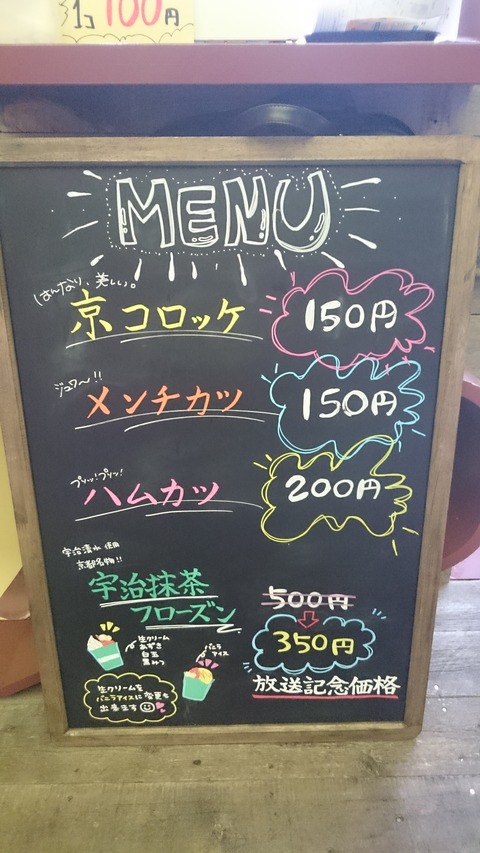 1コ 100円
MENU
はんなり、美しい。
京コロッケ 150円
ジュワ〜!!
メンチカツ 150円
プリッ!プリッ!
ハムカツ 200円
宇治清水使用
京都名物!!
宇治抹茶
フローズン
500円
350円
放送記念価格
生クリーム
あずき
白玉
黒みつ
バニラ
アイス
生クリームを
バニラアイスに変更も
出来ます